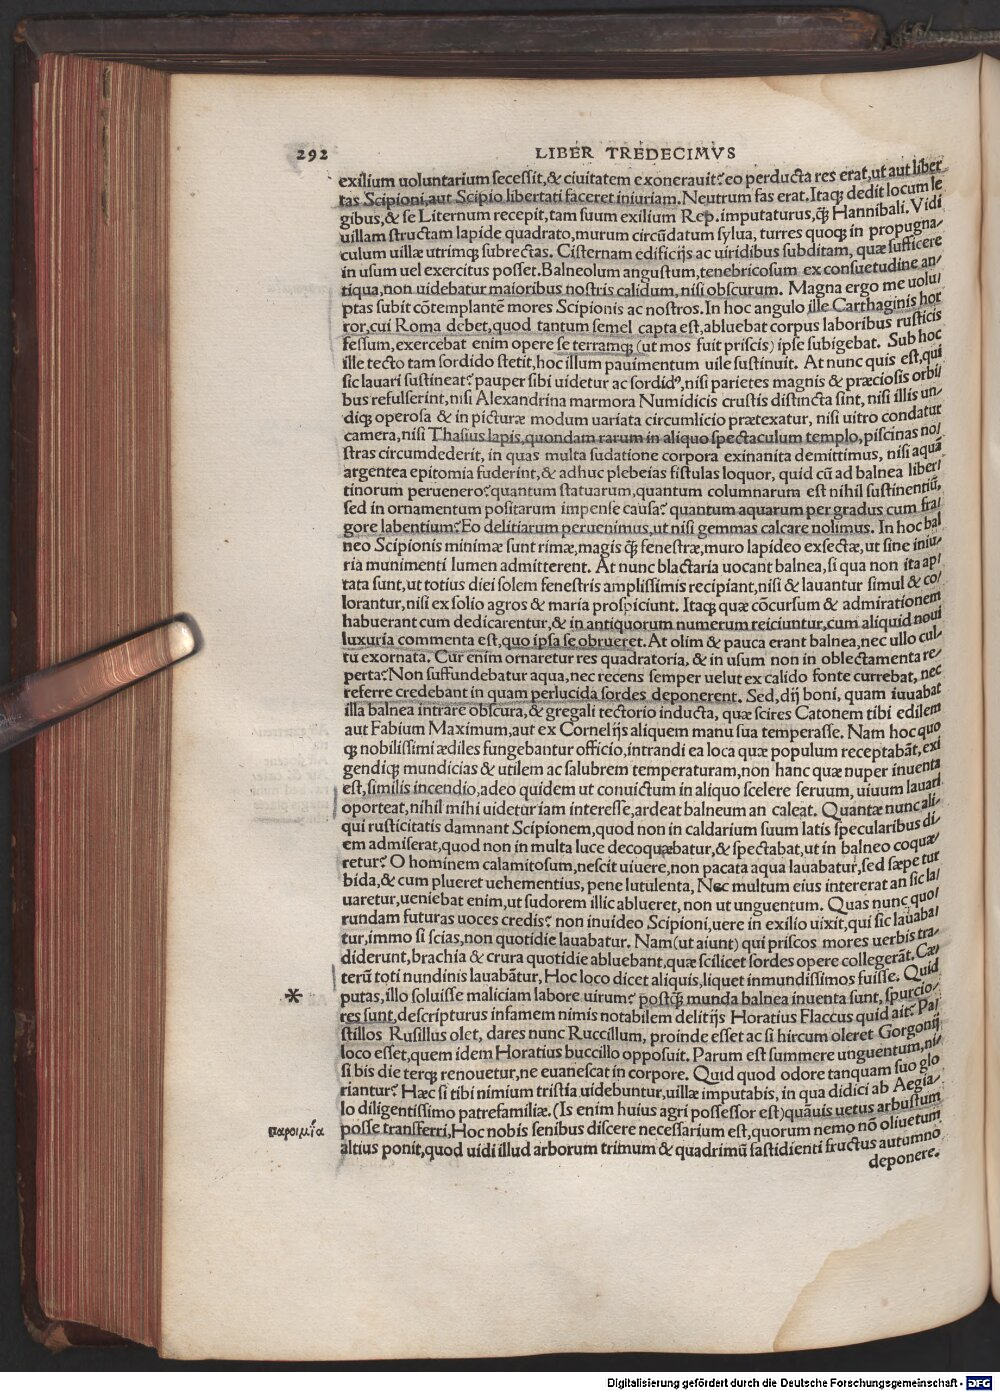 292
LIBER TREDECIMVS
exilium uoluntarium secessit,& ciuitatem exonerauit? eo perducta res erat,ut aut liber
tas Scipioni,aut Scipio libertati faceret iniuriam. Neutrum fas erat. Itaqꝫ dedit locum le
gibus,& se Liternum recepit,tam suum exilium Rep. imputaturus,q̃ Hannibali. Vidi
uillam structam lapide quadrato,murum circũdatum sylua, turres quoqꝫ in propugna-
culum uillæ utrimqꝫ subrectas. Cisternam edificijs ac uiridibus subditam, quæ sufficere
in usum uel exercitus posset.Balneolum angustum,tenebricosum ex consuetudine an-
tiqua,non uidebatur maioribus nostris calidum,nisi obscurum. Magna ergo me uolu/
ptas subit cõtemplantẽ mores Scipionis ac nostros.In hoc angulo ille Carthaginis hor
ror,cui Roma debet,quod tantum semel capta est,abluebat corpus laboribus rusticis
fessum,exercebat enim opere se terramqꝫ (ut mos fuit priscis) ipse subigebat. Sub hoc
ille tecto tam sordido stetit,hoc illum pauimentum uile sustinuit. At nunc quis est,qui
sic lauari sustineat? pauper sibi uidetur ac sordidꝰ,nisi parietes magnis & præciosis orbi/
bus refulserint,nisi Alexandrina marmora Numidicis crustis distincta sint, nisi illis un-
diqꝫ operosa & in picturæ modum uariata circumlicio prætexatur, nisi uitro condatur
camera,nisi Thasius lapis,quondam rarum in aliquo spectaculum templo,piscinas no/
stras circumdederit, in quas multa sudatione corpora exinanita demittimus, nisi aquã
argentea epitomia fuderint,& adhuc plebeias fistulas loquor, quid cũ ad balnea liber/
tinorum peruenero?quantum statuarum,quantum columnarum est nihil sustinentiũ,
sed in ornamentum positarum impense causa? quantum aquarum per gradus cum fra/
gore labentium? Eo delitiarum peruenimus,ut nisi gemmas calcare nolimus. In hoc bal
neo Scipionis minimæ sunt rimæ,magis q̃ fenestræ,muro lapideo exsectæ,ut sine iniu-
ria munimenti lumen admitterent. At nunc blactaria uocant balnea,si qua non ita ap/
tata sunt,ut totius diei solem fenestris amplissimis recipiant,nisi & lauantur simul & co/
lorantur,nisi ex solio agros & maria prospiciunt. Itaqꝫ quæ cõcursum & admirationem
habuerant cum dedicarentur,& in antiquorum numerum reiciuntur,cum aliquid noui
luxuria commenta est,quo ipsa se obrueret.At olim & pauca erant balnea,nec ullo cul-
tu exornata. Cur enim ornaretur res quadratoria, & in usum non in oblectamenta re-
perta?Non suffundebatur aqua,nec recens semper uelut ex calido fonte currebat, nec
referre credebant in quam perlucida sordes deponerent. Sed,dij boni, quam iuuabat
illa balnea intrare obscura,& gregali tectorio inducta, quæ scires Catonem tibi edilem
aut Fabium Maximum,aut ex Cornelijs aliquem manu sua temperasse. Nam hoc quo
qꝫ nobilissimi ædiles fungebantur officio,intrandi ea loca quæ populum receptabãt,exi
gendiqꝫ mundicias & utilem ac salubrem temperaturam,non hanc quæ nuper inuenta
est,similis incendio,adeo quidem ut conuictum in aliquo scelere seruum, uiuum lauari
oporteat,nihil mihi uidetur iam interesse,ardeat balneum an caleat. Quantæ nunc ali-
qui rusticitatis damnant Scipionem,quod non in caldarium suum latis specularibus di-
em admiserat,quod non in multa luce decoquebatur,& spectabat,ut in balneo coquæ/
retur? O hominem calamitosum,nescit uiuere,non pacata aqua lauabatur,sed sæpe tur
bida,& cum plueret uehementius, pene lutulenta, Nec multum eius intererat an sic la/
uaretur,ueniebat enim,ut sudorem illic ablueret, non ut unguentum. Quas nunc quo/
rundam futuras uoces credis? non inuideo Scipioni,uere in exilio uixit,qui sic lauaba/
tur,immo si scias,non quotidie lauabatur. Nam(ut aiunt) qui priscos mores uerbis tra-
diderunt,brachia & crura quotidie abluebant,quæ scilicet sordes opere collegerãt. Cæ-
terũ toti nundinis lauabãtur, Hoc loco dicet aliquis,liquet inmundissimos fuisse. Quid
putas,illo soluisse maliciam labore uirum? postq̃ munda balnea inuenta sunt, spurcio-
res sunt,descripturus infamem nimis notabilem delitijs Horatius Flaccus quid ait? Pa/
stillos Rusillus olet, dares nunc Ruccillum, proinde esset ac si hircum oleret Gorgonij
loco esset,quem idem Horatius buccillo opposuit. Parum est summere unguentum,ni/
si bis die terqꝫ renouetur,ne euanescat in corpore. Quid quod odore tanquam suo glo
riantur? Hæc si tibi nimium tristia uidebuntur,uillæ imputabis, in qua didici ab Aegia-
lo diligentissimo patrefamiliæ.(Is enim huius agri possessor est)quãuis uetus arbustum
posse transferri,Hoc nobis senibus discere necessarium est,quorum nemo nõ oliuetum
altius ponit,quod uidi illud arborum trimum & quadrimũ fastidienti fructus autumno
deponere.
*
παροιμία
Digitalisierung gefördert durch die Deutsche Forschungsgemeinschaft - DFG